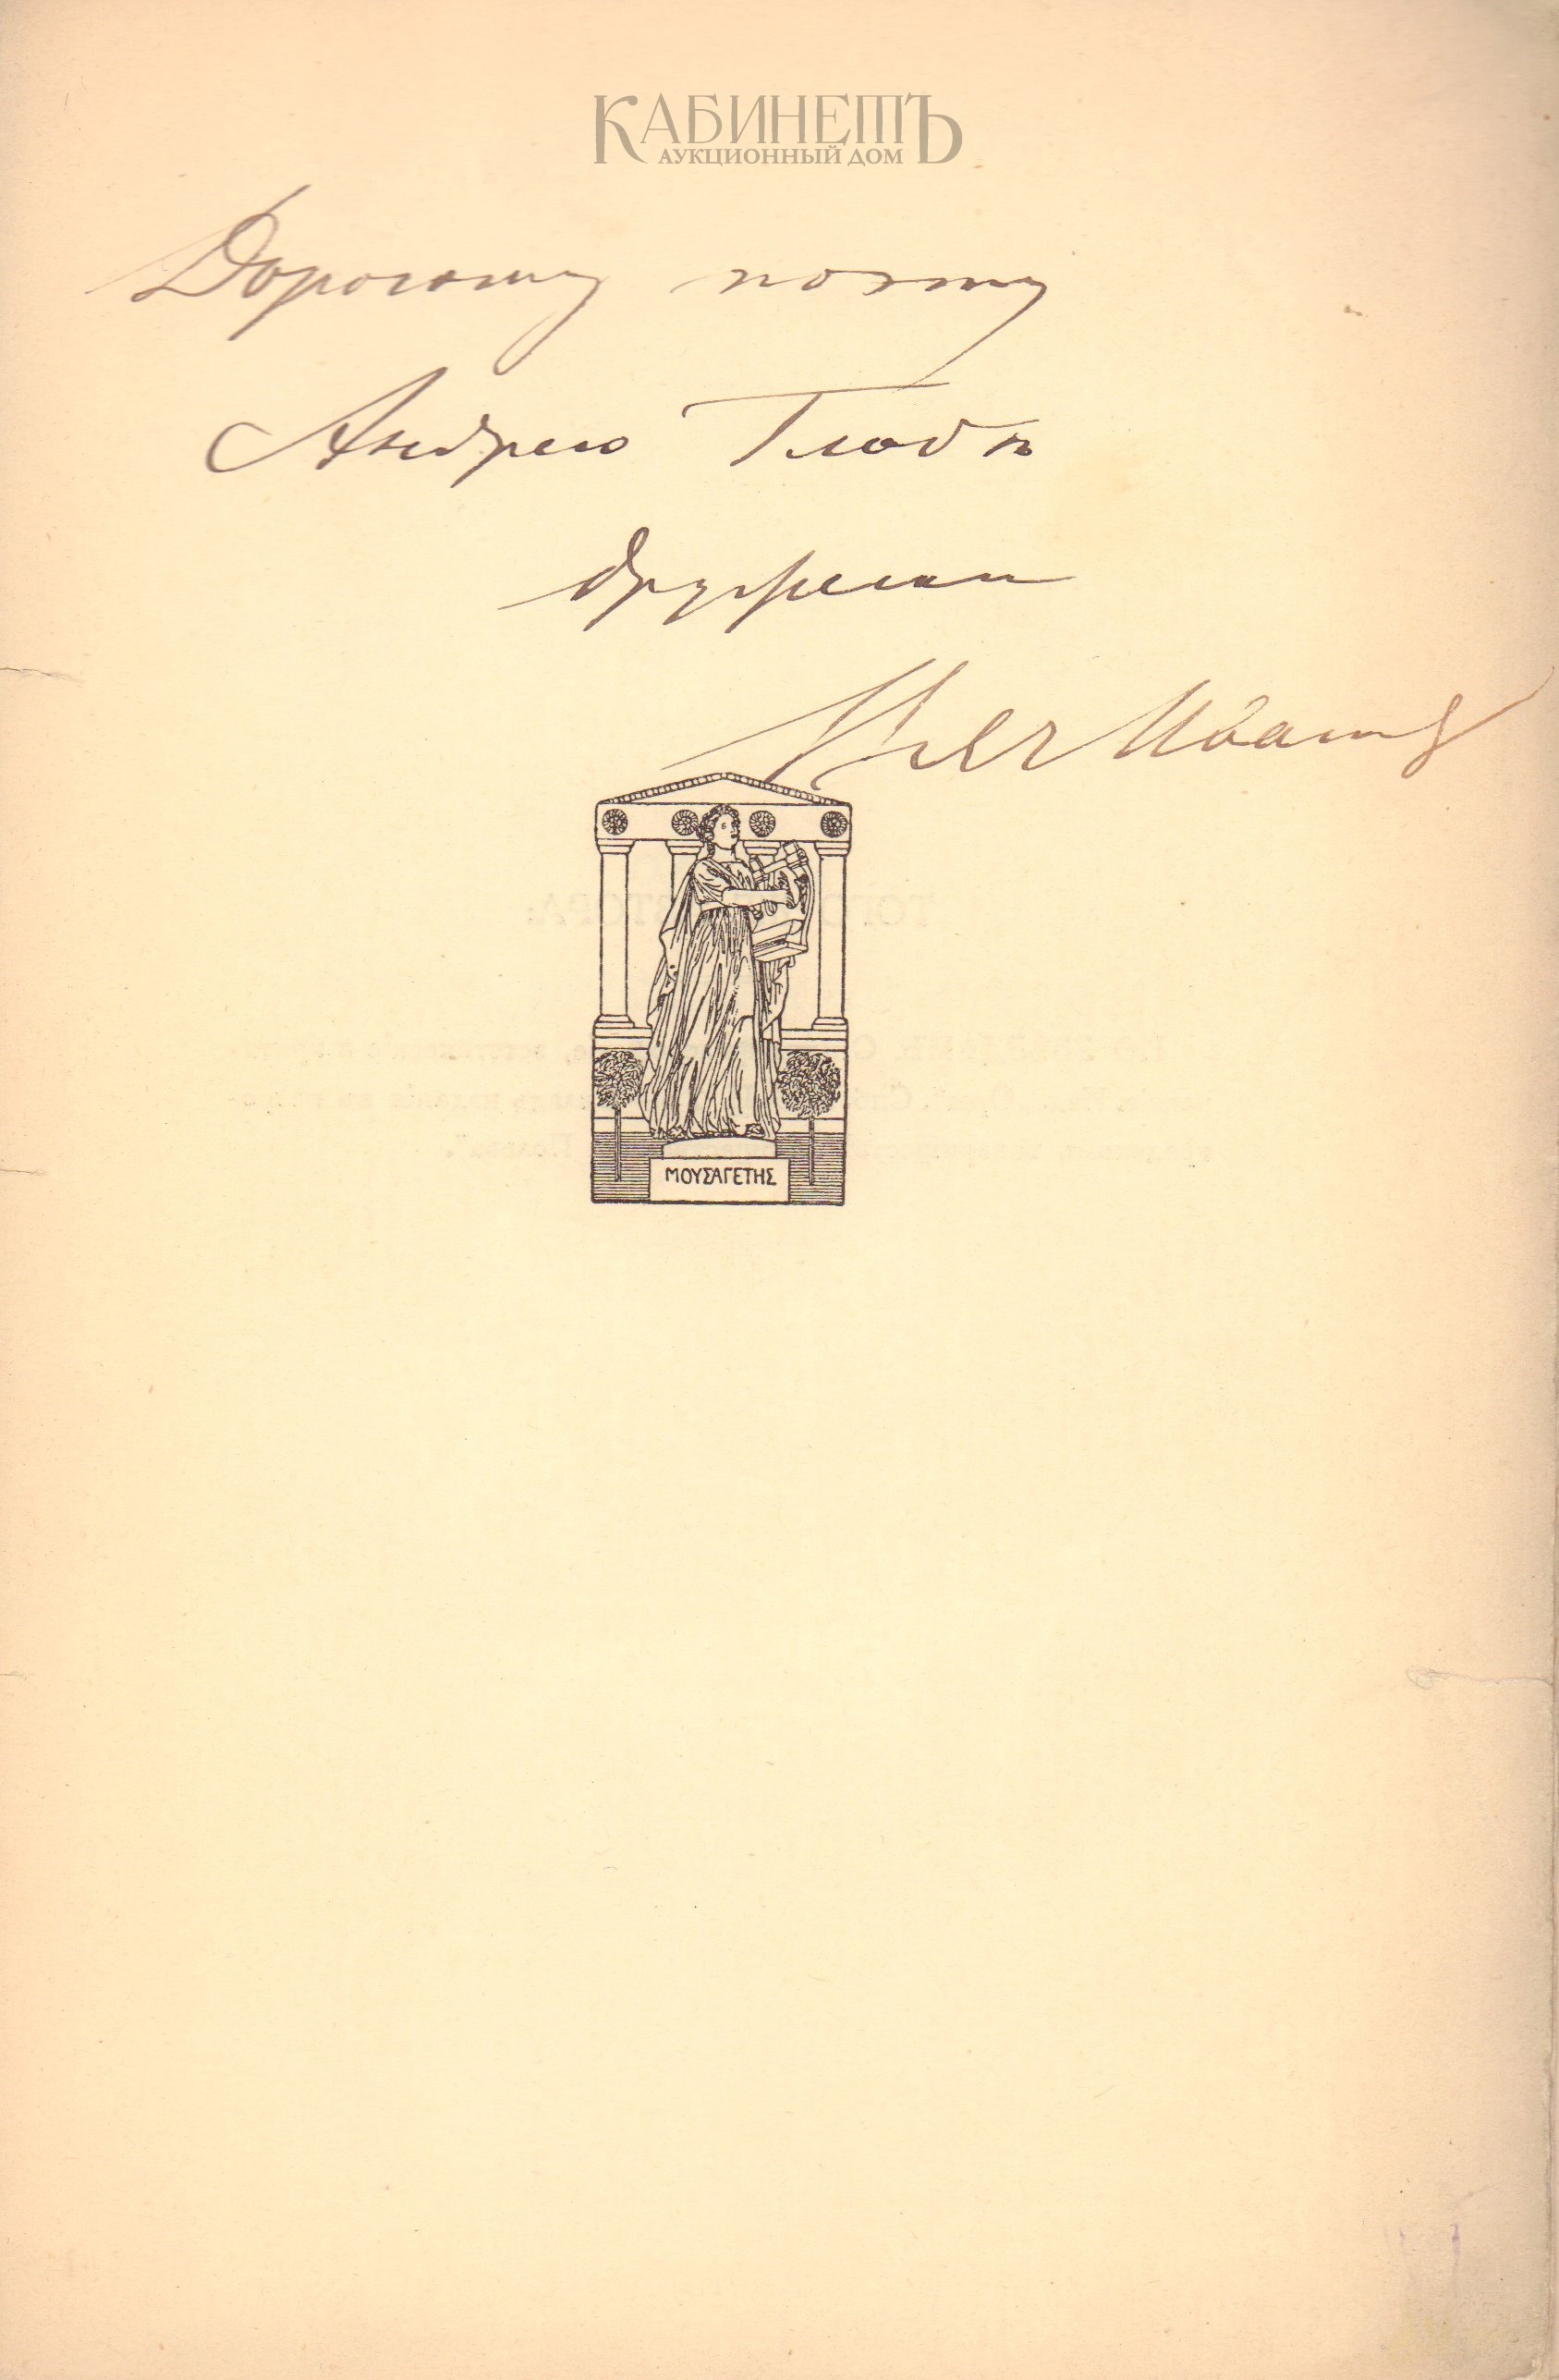 КАБИНЕТЪ
АУКЦИОННЫЙ ДОМ
Дорогому поэту
Андрею Глобѣ
дружески
Вяч Иванов
ΜΟΥΣΑΓΕΤΗΣ